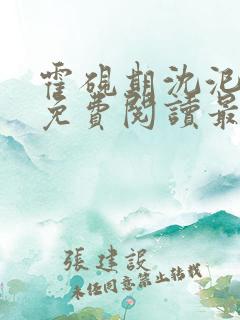 霍砚期沈泥
免費閱讀最
張建設
未经同意禁止转载